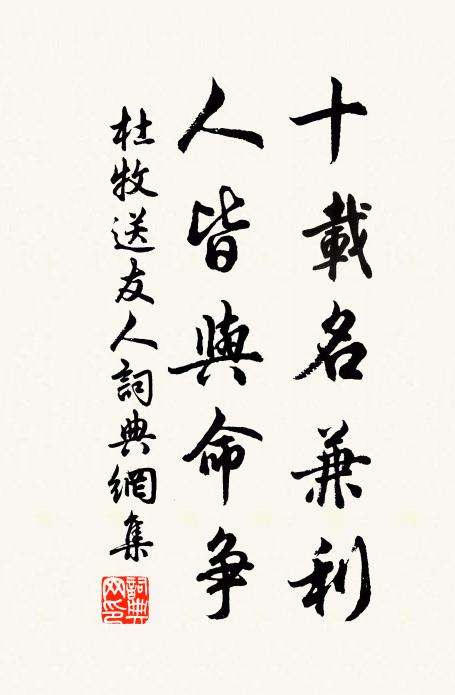 十載名兼利
人皆與命爭
杜牧送友人詞典網集
詞典网印